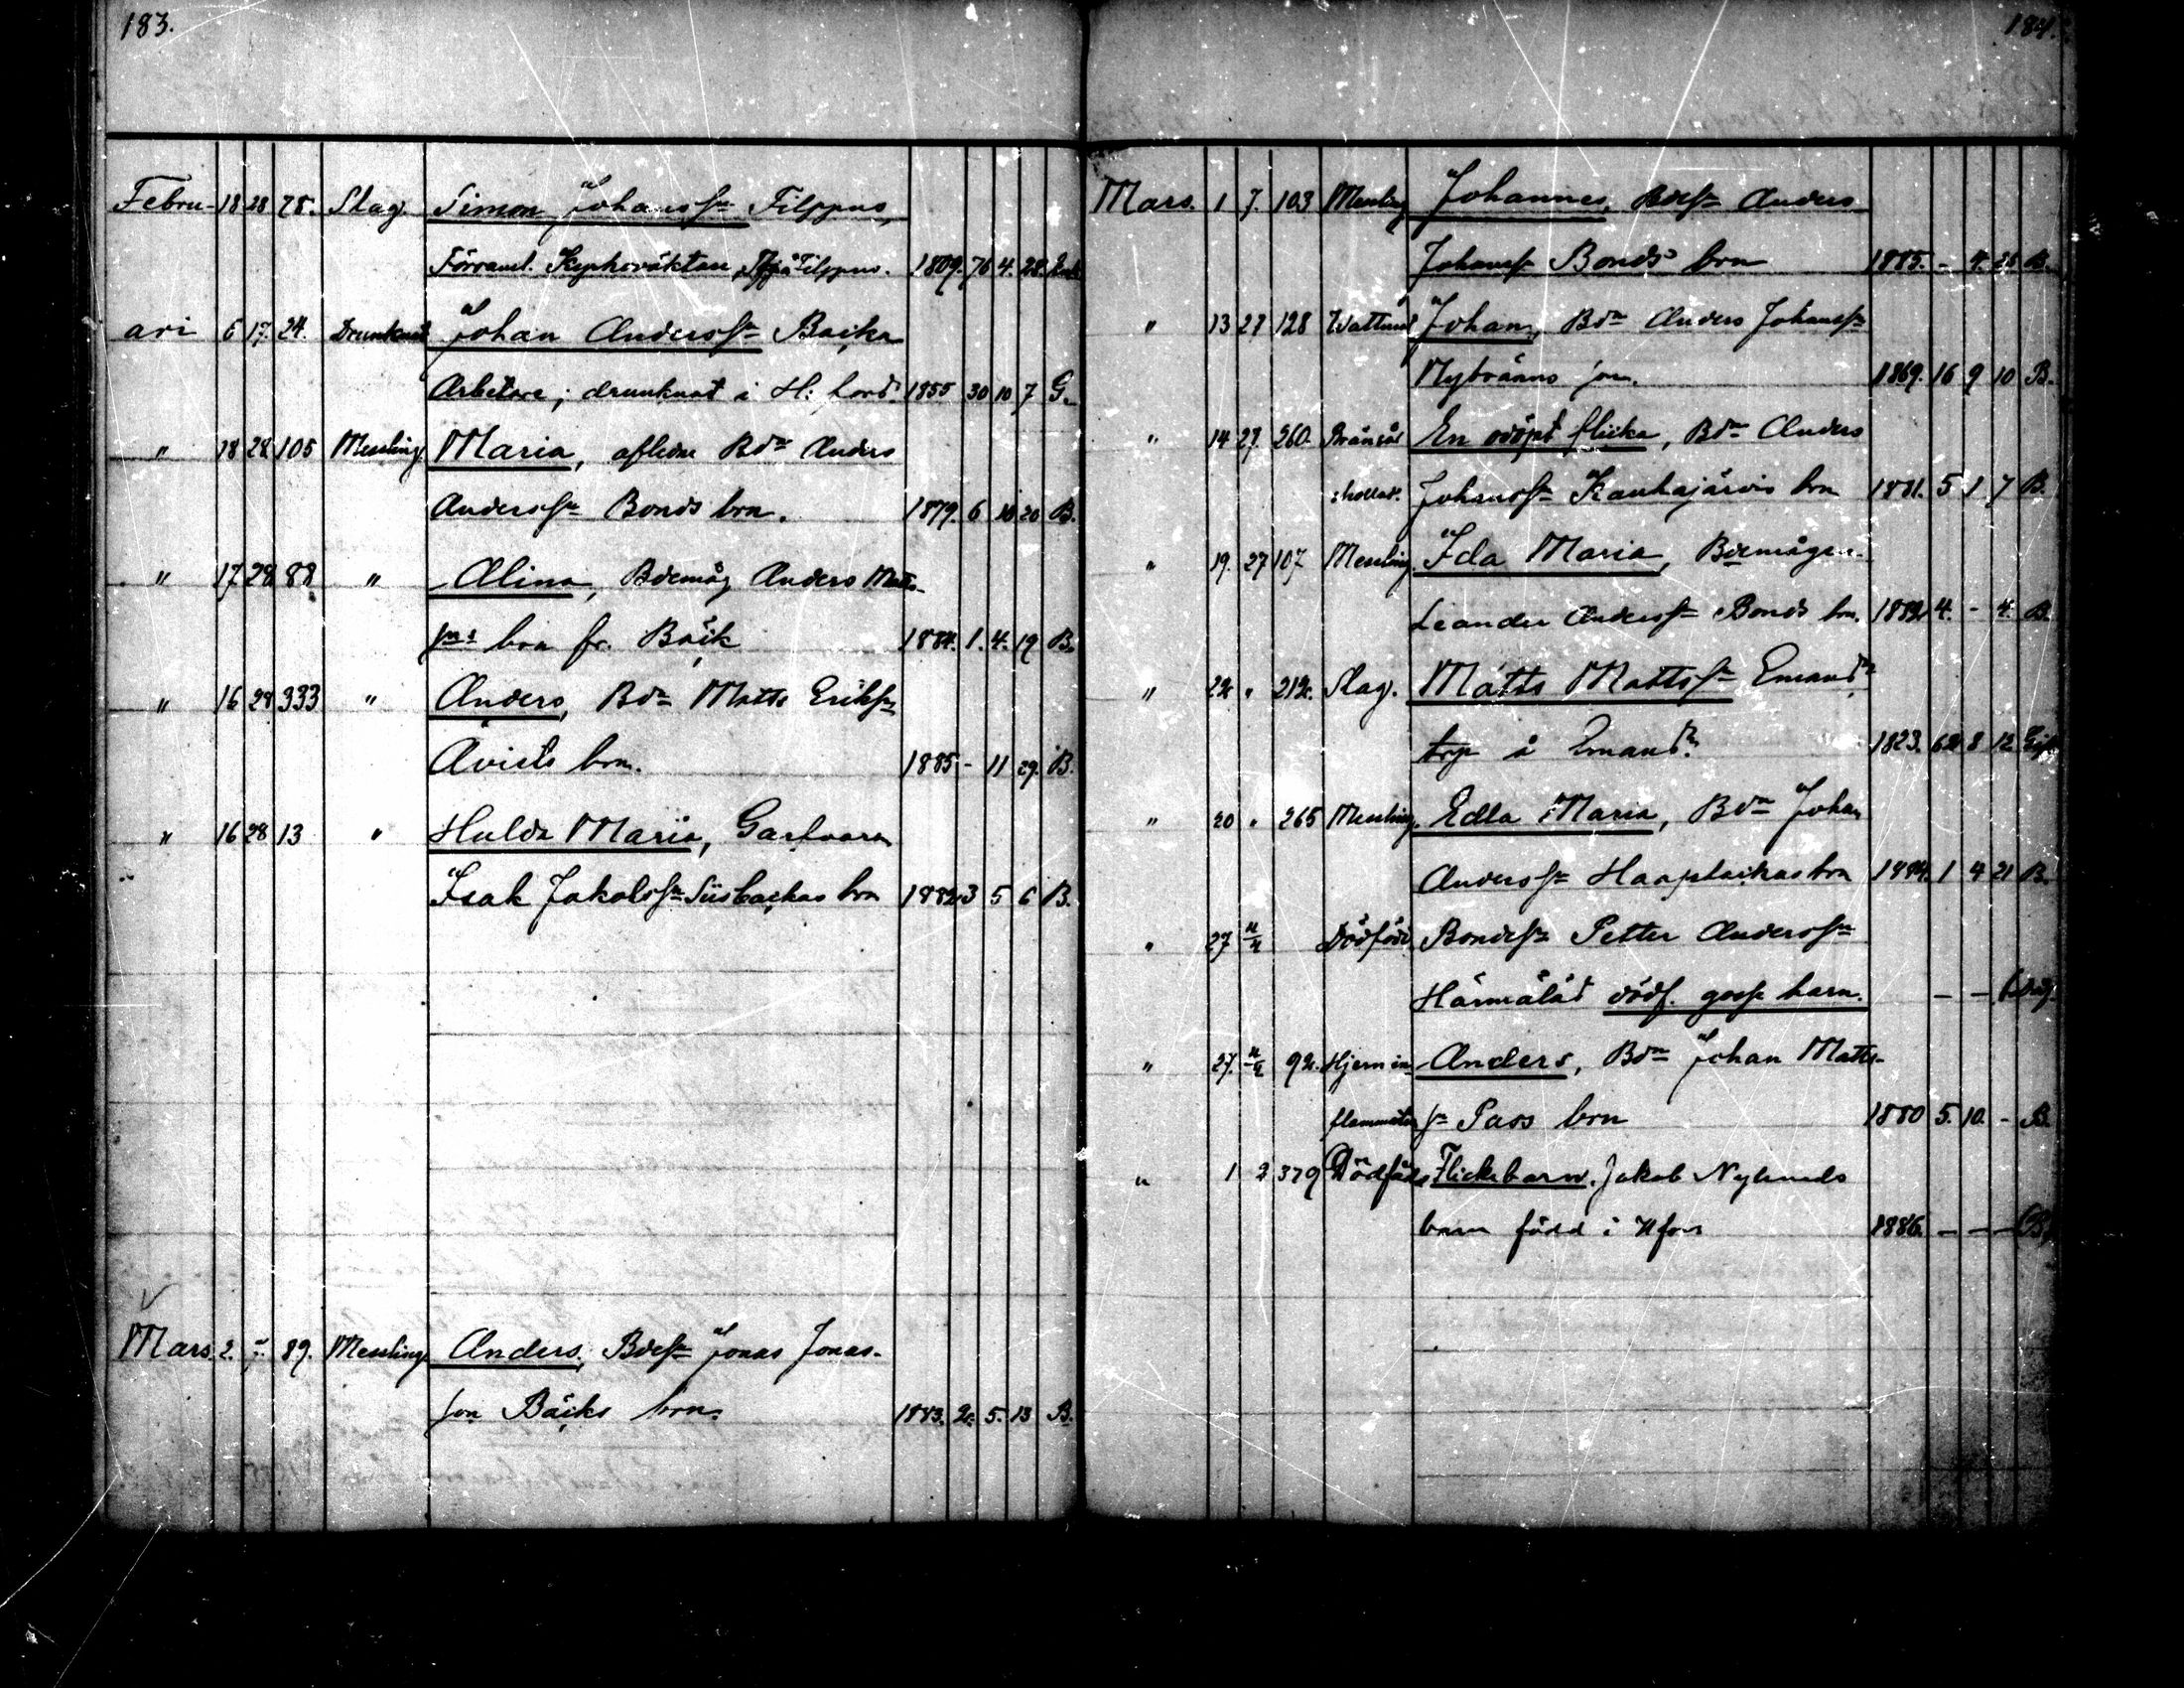 183.
Febru- 18 28 78. Slag. Simon Johansson Filppus,
Förraml. Kyrkoväktare, Filppus. 1809. 76 4. 28. Enk
ari 6 17. 24. Drunknat Johan Andersson Backa
Arbetare; drunknat i H: fors 1855 30 10 7 G.
" 18 28. 105 Messling. Maria, aflidne Bdn Anders
Anderssn Bonds brn. 1879. 6 10 20 B.
" 17 28 88 " Alina, Bdemåg Anders Matts-
sons brn fr. Bäck 1884. 1. 4. 19 B.
" 16 28 333 " Anders, Bdn Matts Erikssn
Qvists brn. 1885 - 11 29. B.
" 16 28 13 " Hulda Maria, Garfvaren
Isak Jakobssn Siisbackas brn 1882. 3 5 6 B.
Mars. 2. 7. 89. Messling. Anders, Bdessn Jonas Jonas-
son Bäcks brn. 1883. 2. 5. 13 B.
184.
Mars. 1 7. 103 Messling Johannes, Bdessn Anders
Johanss Bonds brn 1885. - 4. 28 B.
" 13 27 128 Wattus. Johan, Bdn Anders Johanssn
Nybränns son. 1869. 16 9 10 B.
" 14 27. 260. Bränsår En odöpt flicka, Bdn Anders
skollat. Johanssn Kauhajärvis brn 1881. 5 1 7 B.
" 19. 27 107 Messling. Ida Maria, Bdemågen
Leander Anderssn Bonds brn. 1882 4. - 4. B.
" 22 " 212. Slag. Matts Mattssn Emaus
trp å Emaus. 1823. 62 8 12 Gift
" 20 " 265 Messling. Edla Maria, Bdn Johan
Anderssn Haapbackas brn 1884. 1 4 21 B.
" 27 4/4 Dödföds Bondessn Petter Anderssn
Härmälås dödf. gosse barn. - -
" 27. 4/4 92. Hjernin- Anders, Bdn Johan Matts-
flammation sn Pass brn 1880 5. 10. - B.
" 1 2 379 Dödfödd Flickebarn. Jakob Nylunds
barn född i Hfors 1886. - - - B.